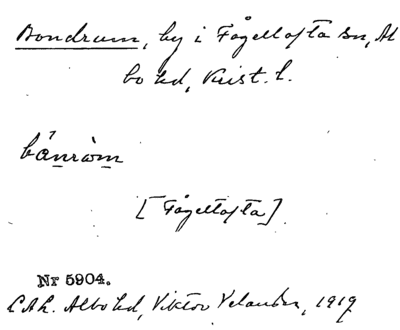 Bondrum, by i Fågeltofta sn, Al
bo hd, Krist. l.
bånròm
[Fågeltofta]
Nr 5904.
LAL. Albo hd, Viktor Velander, 1919